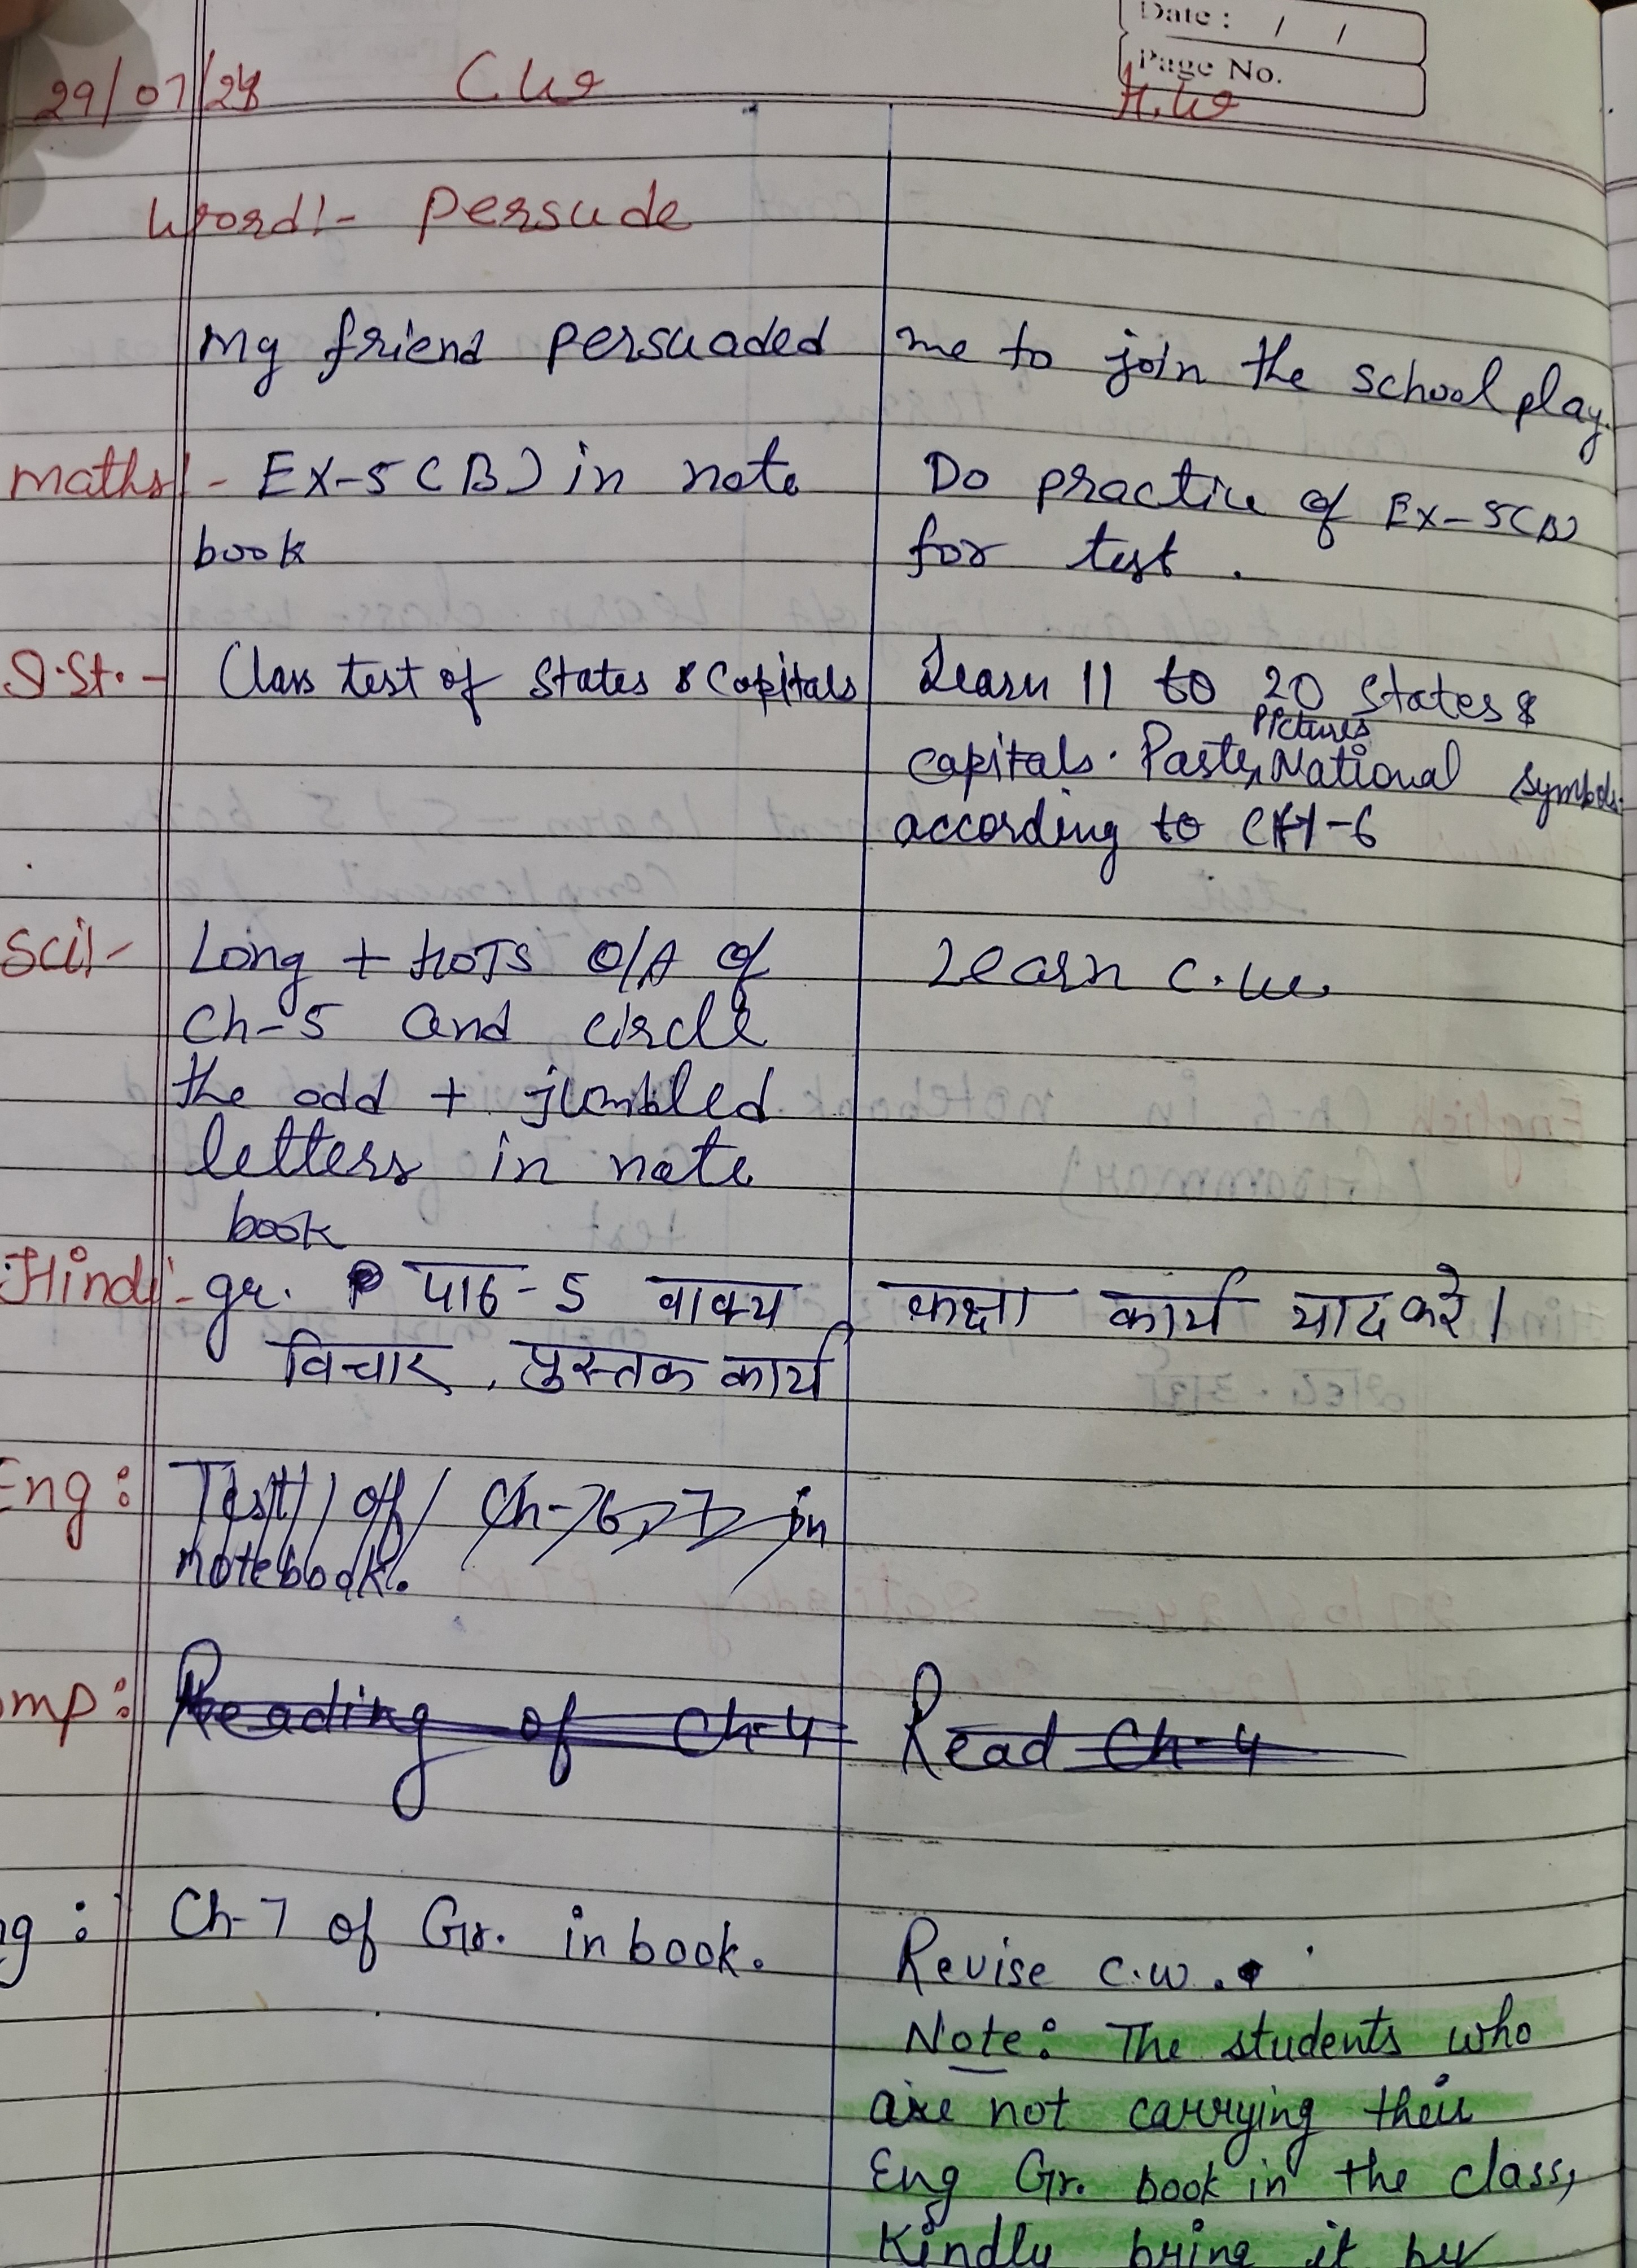 Date : / /
Page No.
29/07/24 C.W H.W
Word:- Persude
My friend persuaded me to join the school play.
Maths:- Ex-5(B) in note
book
Do practice of Ex-5(B)
for test.
S.St. - Class test of States & Capitals
Learn 11 to 20 States &
Pictures
capitals. Paste National symbols
according to CH-6
Sci:- Long + HOTS Q/A of
Ch-5 and circle
the odd + jumbled
letters in note
book
Learn C.W.
Hindi:- gr. पाठ-5 वाक्य
विचार, पुस्तक कार्य
कक्षा कार्य याद करे।
Eng: Test of Ch-6, 7 in
notebook.
omp: Reading of Ch-4
Read Ch-4
ng: Ch-7 of Gr. in book.
Revise C.W.
Note: The students who
are not carrying their
Eng Gr. book in the class,
Kindly bring it by